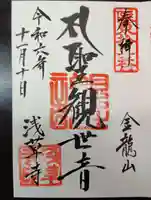 奉拝
金龍山
聖観世音
浅草寺
令和六年
十一月十日